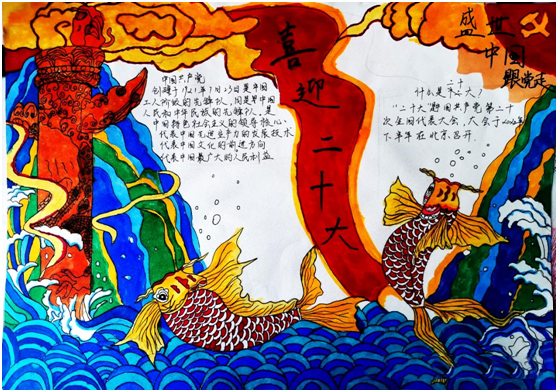 喜迎二十大
盛世
中国
跟党走
中国共产党
创建于1921年7月23日是中国
工人阶级的先锋队,同是是中国
人民和中华民族的先锋队,是
中国特色社会主义的领导核心
代表中国先进生产力的发展技术
代表中国文化的前进方向
代表中国最广大的人民利益
什么是二十大?
"二十大"是中国共产党第二十
次全国代表大会,大会于2022年
下半年在北京召开.